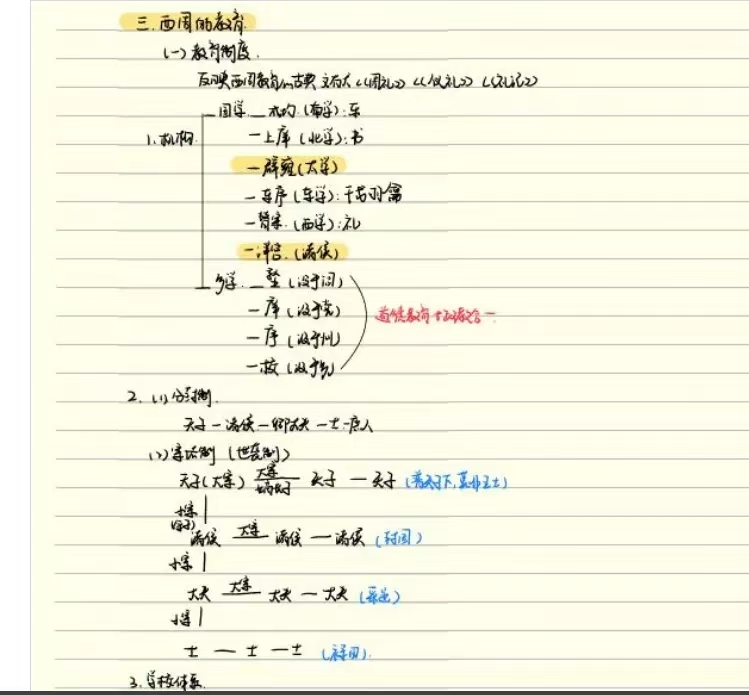 三.西周的教育
(一)教育制度.
反映西周教育的古典文献有大《周礼》《仪礼》《礼记》
国学 — 成均(南学):乐
1.机构 — 上庠(北学):书
— 辟雍(太学)
— 东序(东学):干戈羽龠
— 瞽宗(西学):礼
— 泮宫.(诸侯)
乡学 — 塾(设于闾)
— 庠(设于党)
— 序(设于州)
— 校(设于乡)
道德教育
2.(1)分封制.
天子—诸侯—卿大夫—士—庶人
(2)宗法制(世袭制)
天子(大宗) 大宗 天子 — 天子 (普天之下,莫非王土)
小宗
诸侯 大宗 诸侯 — 诸侯 (封国)
小宗
大夫 大宗 大夫 — 大夫 (采邑)
小宗
士 — 士 — 士 (禄田)
3.学校体系